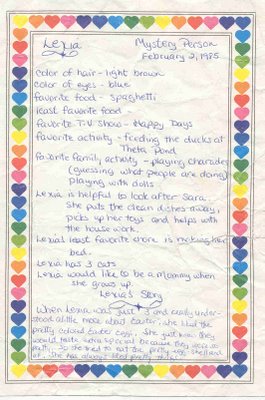 Lexia
Mystery Person
February 2, 1985
color of hair - light brown
color of eyes - blue
favorite food - spaghetti
least favorite food -
favorite T.V. Show - Happy Days
favorite activity - feeding the ducks at
Theta Pond
favorite family activity - playing charades
(guessing what people are doing)
playing with dolls
Lexia is helpful to look after Sara.
She puts the clean dishes away,
picks up her toys and helps with
the house work.
Lexia's least favorite chore is making her
bed.
Lexia has 3 cats
Lexia would like to be a Mommy when
she grows up.
Lexia's Story
When Lexia was just 3 and only under-
stood a little more about Easter, she liked the
pretty colored Easter eggs. She just knew they
would taste extra special because they were so
pretty. So she tried to eat the pretty egg, shell and
all. She has always liked pretty